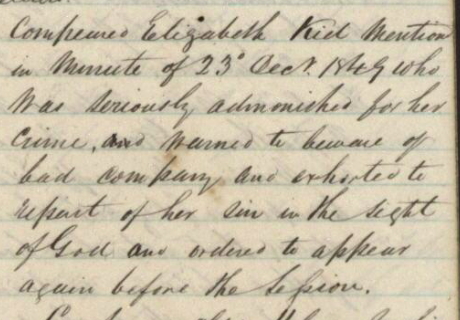 Compeared Elizabeth Kid Mention
in Minute of 23d Decr. 1849 who
was seriously admonished for her
crime, and warned to beware of
bad company and exhorted to
repent of her sin in the sight
of God and ordered to appear
again before the Session.